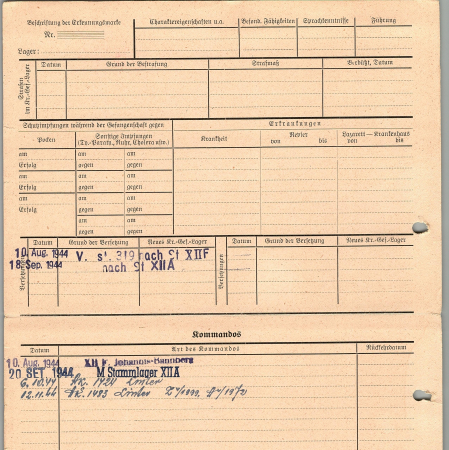 Beschriftung der Erkennungsmarke
Nr.
Lager:
Charaktereigenschaften u.a.
Besond. Fähigkeiten
Sprachkenntnisse
Führung
Strafen im Kr.-Gef.-Lager
Datum
Grund der Bestrafung
Strafmaß
Verbüßt, Datum
Schutzimpfungen während der Gefangenschaft gegen
Erkrankungen
Pocken
Sonstige Impfungen
(Ty.-Paraty., Ruhr, Cholera usw.)
Krankheit
Revier
von bis
Lazarett — Krankenhaus
von bis
am am am
Erfolg gegen gegen
am am am
Erfolg gegen gegen
am am am
Erfolg gegen gegen
am am
gegen gegen
Versetzungen
Datum
Grund der Versetzung
Neues Kr.-Gef.-Lager
Versetzungen
Datum
Grund der Versetzung
Neues Kr.-Gef.-Lager
10. Aug. 1944 V. st. 319 nach St XIIF
18. Sep. 1944 nach St XIIA
Kommandos
Datum
Art des Kommandos
Rückkehrdatum
10. Aug. 1944 XII F Johannis-Bannberg
20 SET 1944 M Stammlager XIIA
6.10.44 1424
12.11.44 1483